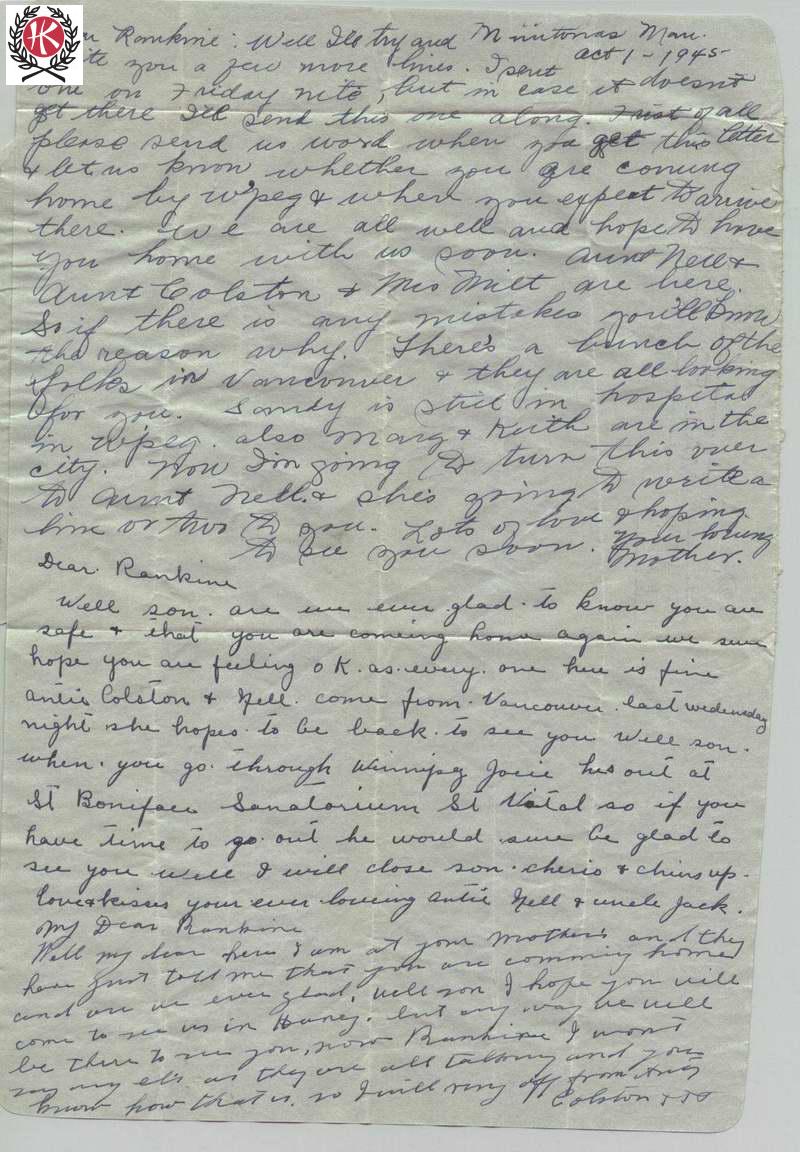 HK
Rankine: Well I'll try and Minitonas Man.
you a few more lines. I sent Oct 1 - 1945
one on Friday nite, but in case it doesn't
get there I'll send this one along. First of all
please send us word when you get this letter
& let us know whether you are coming
home by W'peg & when you expect to arrive
there. We are all well and hope to have
you home with us soon. Aunt Nell &
Aunt Colston & Mrs Milt are here.
So if there is any mistakes you'll know
the reason why. There's a bunch of the
folks in Vancouver & they are all looking
for you. Sandy is still in hospital
in W'peg. also Marg & Keith are in the
city. Now I'm going to turn this over
to Aunt Nell. & she's going to write a
line or two to you. Lots of love & hoping
to see you soon. Your loving
Mother.
Dear Rankine
Well son. are we ever glad. to know you are
safe & that you are comeing home again we sure
hope you are feeling OK. as. every. one here is fine
antie Colston & Nell. come from. Vancouver. last wedensday
night she hopes. to be back. to see you Well son.
when. you go. through Winnipeg his out at
St Boniface Sanatorium St Vital so if you
have time to go. out he would sure be glad to
see you well I will close son. cherio & chins up.
love & kisses your ever loveing antie Nell & uncle Jack.
My Dear Rankine
Well my dear here I am at your mothers and they
have just told me that you are comming home
and are we ever glad. well son I hope you will
come to see us in Haney. but any way we will
be there to see you, now Rankine I won't
say any els as they are all talking and you
know how that is. so I will ring off from Anty
Colston